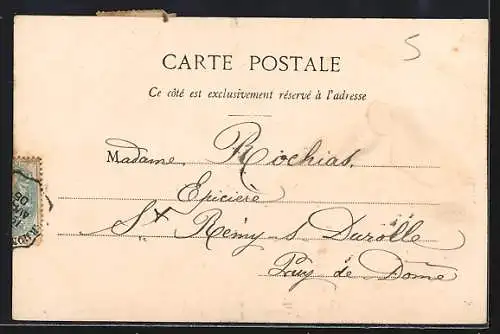 5
CARTE POSTALE
Ce côté est exclusivement réservé à l'adresse
Madame Rochias,
Epicière
St Rémy s Durolle
Puy de Dôme